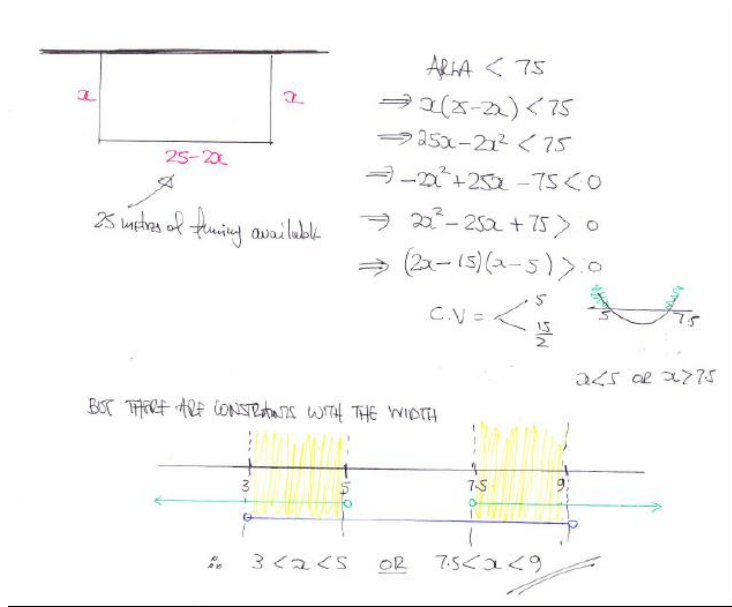 x
x
25-2x
25 metres of fencing available
AREA < 75
⇒ x(25-2x) < 75
⇒ 25x-2x² < 75
⇒ -2x²+25x-75<0
⇒ 2x²-25x+75>0
⇒ (2x-15)(x-5)>0
C.V = < 5
15/2
5 7.5
x<5 OR x>7.5
BUT THERE ARE CONSTRAINTS WITH THE WIDTH
3 5 7.5 9
∴ 3<x<5 OR 7.5<x<9